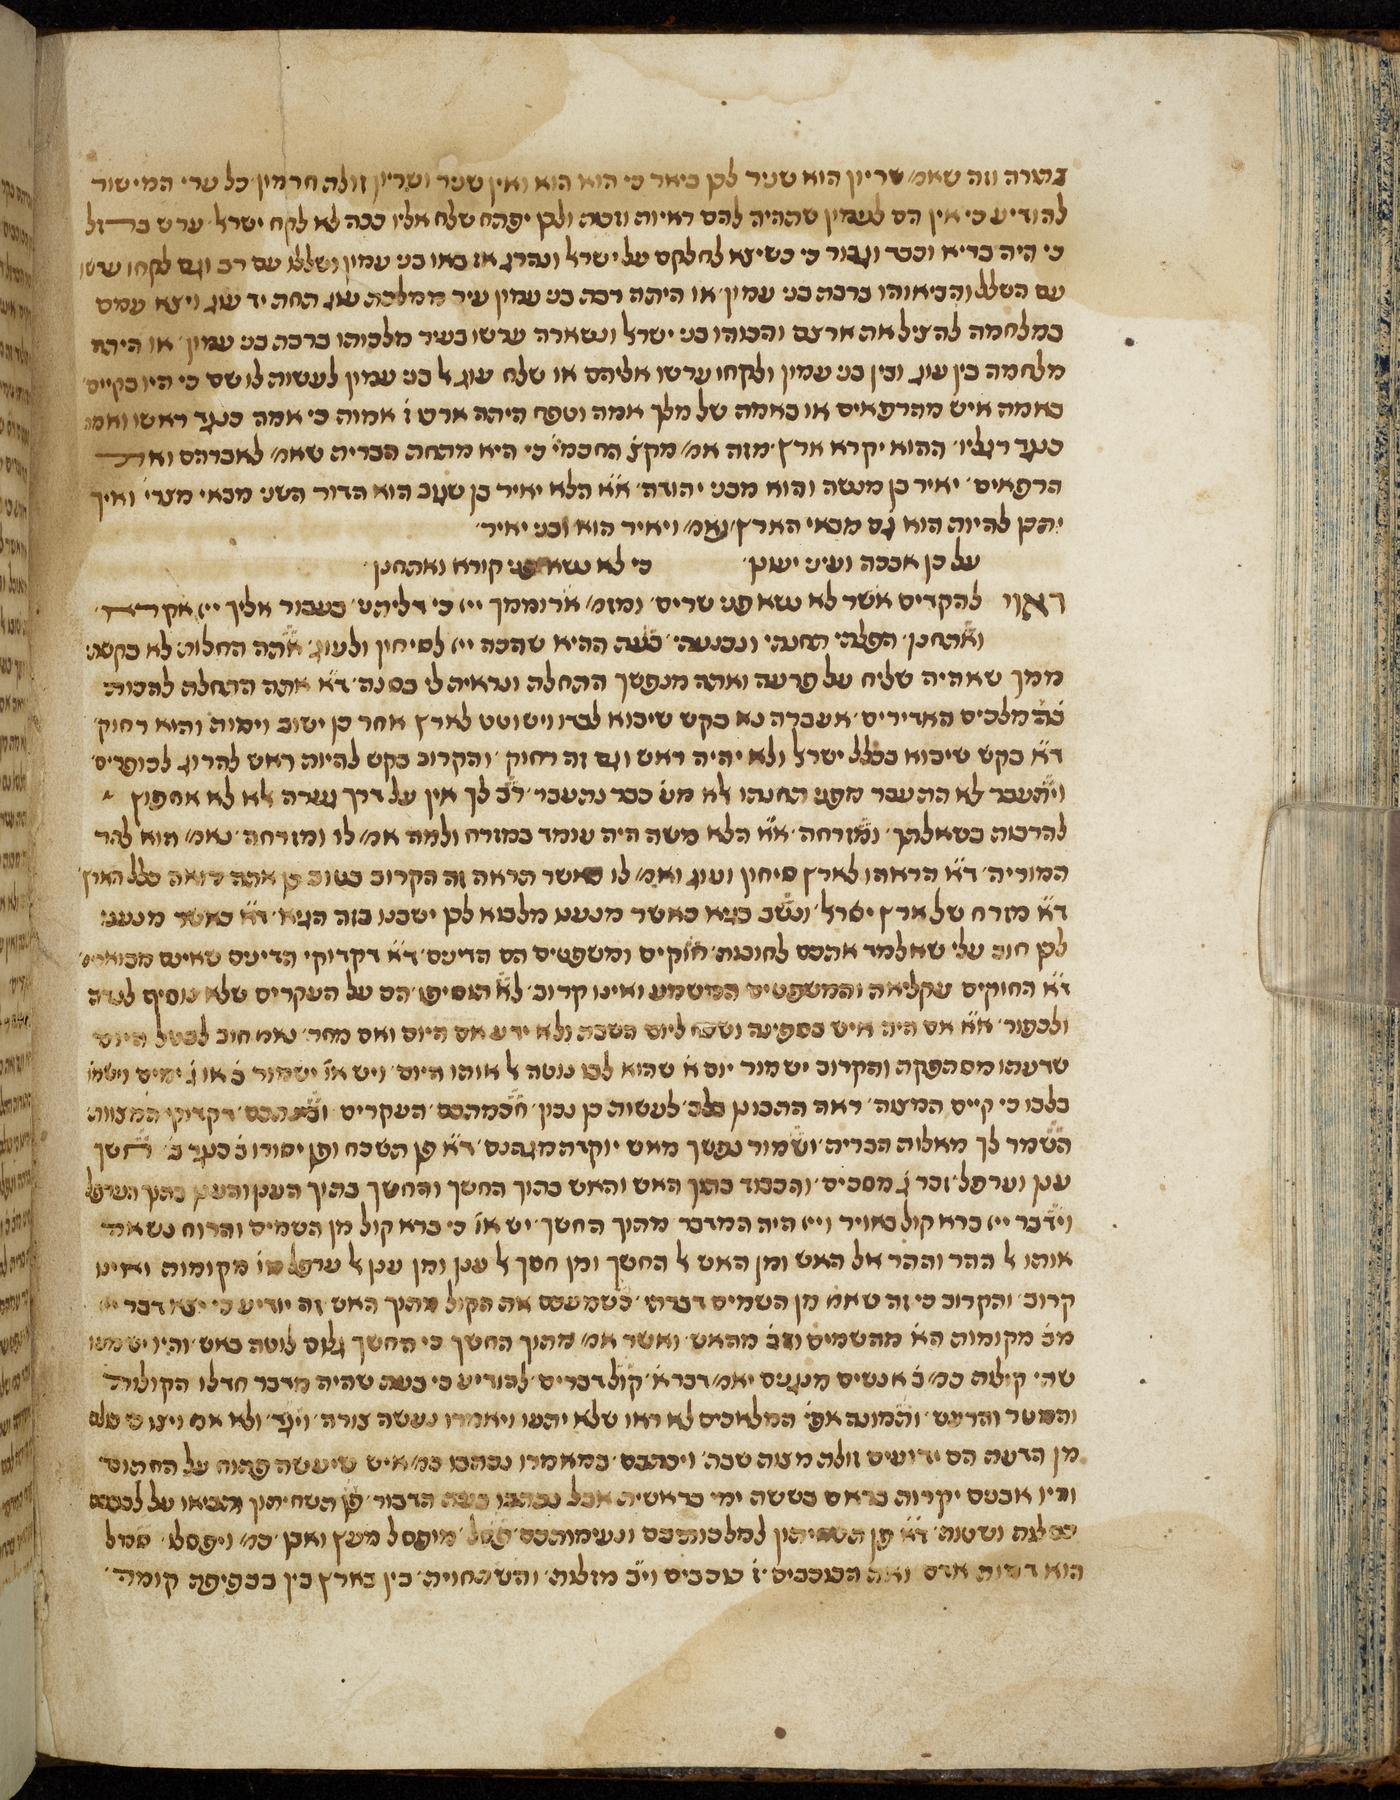 בתורה וזה שאמ׳ שריון הוא שניר לכן ביאר כי הוא הוא ואין שניר ושריון זולת חרמון כל ערי המישור
להודיע כי אין הם לעמון שתהיה להם ראיות וזכות ולכן יפתח שלח אליו ככה לא לקח ישראל ערש ברזל
כי היה בריא וכבד וגבור כי כשיצא לחלקם על ישראל ונהרג אז באו בני עמון ושללו עם רב וגם לקחו ערשו
עם השלל והביאוהו ברבת בני עמון או היתה רבת בני עמון עיר ממלכת עוג תחת יד עוג ויצא עמם
במלחמה להציל את ארצם והכוהו בני ישראל ונשארה ערשו בעיר מלכותו ברבת בני עמון או היתה
מלחמה בין עוג ובין בני עמון ולקחו ערשו אליהם או שלח עוג ל בני עמון לעשות לו שם כי היו בקיים
באמה איש מהרפאים או באמה של מלך אמה וטפח היתה ארש ז אמות כי אמה כנגד ראשו ואמה
כנגד רגליו ההוא יקרא ארץ מזה אמ׳ מקצ החכמי כי היא מתחת הברית שאמ׳ לאברהם ואת
הרפאים יאיר בן מנשה והוא מבני יהודה אא הלא יאיר בן שגוב הוא הדור השני מבאי מצרי ואיך
יתכן להיות הוא גם מבאי הארץ נאמ׳ ויאיר הוא ובני יאיר
על כן אבכה ועיני ישען כי לא נשא פני קורא ואתחנן
ראוי להקדים אשר לא נשא פני שרים ומזמ׳ ארוממך ייי כי דליתני בעבור אליך ייי אקרא
ואתחנן תפלתי תחנתי ונכנעתי בעת ההיא שהכה ייי לסיחון ולעוג אתה החלות לא בקשתי
ממך שאהיה שליח על פרעה ואתה מנפשך התחלה ונראית לי בסנה דא אתה התחלת להכות
בה מלכים האדירים אעברה נא בקש שיבוא לבדו וישוטט לארץ אחר כן ישוב וימות והוא רחוק
דא בקש שיבוא בכלל ישראל ולא יהיה ראש וגם זה רחוק והקרוב בקש להיות ראש להרוג לכופרים
ויתעבר לא התעבר מפני תחנתו לא מש כבר נתעבר רב לך אין על דרך גערה לא לא אחפוץ
להרבות בשאלתך ומזרחה אא הלא משה היה עומד במזרח ולמה אמ׳ לו ומזרחה נאמ׳ הוא להר
המוריה דא הראהו לארץ סיחון ועוג ואמ׳ לו כאשר תראה זה הקרוב בטוב כן אתה רואה כלל הארץ
דא מזרח של ארץ ישראל ונשב בגיא כאשר מנענו מלבוא לכן ישבנו בזה הגיא דא כאשר מנעני
לכן חוב עלי שאלמד אתכם לחובות חוקים ומשפטים הם הדינים דא דקדוקי הדינים שאינם מבוארים
דא החוקים עקליאת והמשפטים המשמע ואינו קרוב לא תוסיפו הם על העקרים שלא נוסיף לנדה
ולכפור אא אם היה איש בספינה ושכח ליום השבת ולא ידע אם היום ואם מחר נאמ חוב לבטל היום
שדעתו מסתפקה והקרוב ישמור יום א שהוא לבו נוטה ל אותו היום ויש או ישמור ב או ג ימים וישמו
בלבו כי קיים המצוה ראה התבונן בלב לעשות כן נכון חכמתכם העקרים ובינתכם דקדוקי המצוות
השמר לך מאלות הברית ושמור נפשך מאש יוקדת מגהנם דא פן תשכח ופן יסורו ב כנגד ב חשך
ענן וערפל זכר ג מסכים והכבוד בתוך האש והאש בתוך החשך והחשך בתוך הענן והענן בתוך הערפל
וידבר ייי ברא קול באויר וייי היה המדבר מתוך החשך יש או כי ברא קול מן השמים והרוח נשאה
אותו ל ההר וההר אל האש ומן האש ל החשך ומן חסך ל ענן ומן ענן ל ערפל מקומות ואינו
קרוב והקרוב כי זה שאמ מן השמים דברתי כשמעכם את הקול מתוך האש זה יודיע כי יצא דבר
מב מקומות הא מהשמים והב מהאש ואשר אמ׳ מתוך החשך כי החשך גלום לוטה באש והיו ישמעו
שתי קולות כמ׳ ב אנשים מנגנים יאמ׳ דברא קול דברים להודיע כי בעת שהיה מדבר חדלו הקולות
והמטר והרעש ותמונה אפי המלאכים לא ראו שלא יתעו ויאמרו נעשה צורה ויגד ולא אמ ויצו
מן הדעת הם ידועים זולת מצות שבת ויכתבם במאמרו נכתבו כמ׳ איש שיעשה פתוח על החתום
והיו אבנים יקרות בראם בששה ימי בראשית אבל נכתבו בעת הדבור פן תשחיתון ותביאו על לבבכם
סכלות ושטות דא פן תשחיתון למלכותכם ונעימותכם פסל מופסל מעץ ואבן כמ׳ ויפסל סמל
הוא דמות אדם ואת הכוכבים ז כוכבים ויב מזלות והשתחוית בין בארץ בין בכפיפת קומה